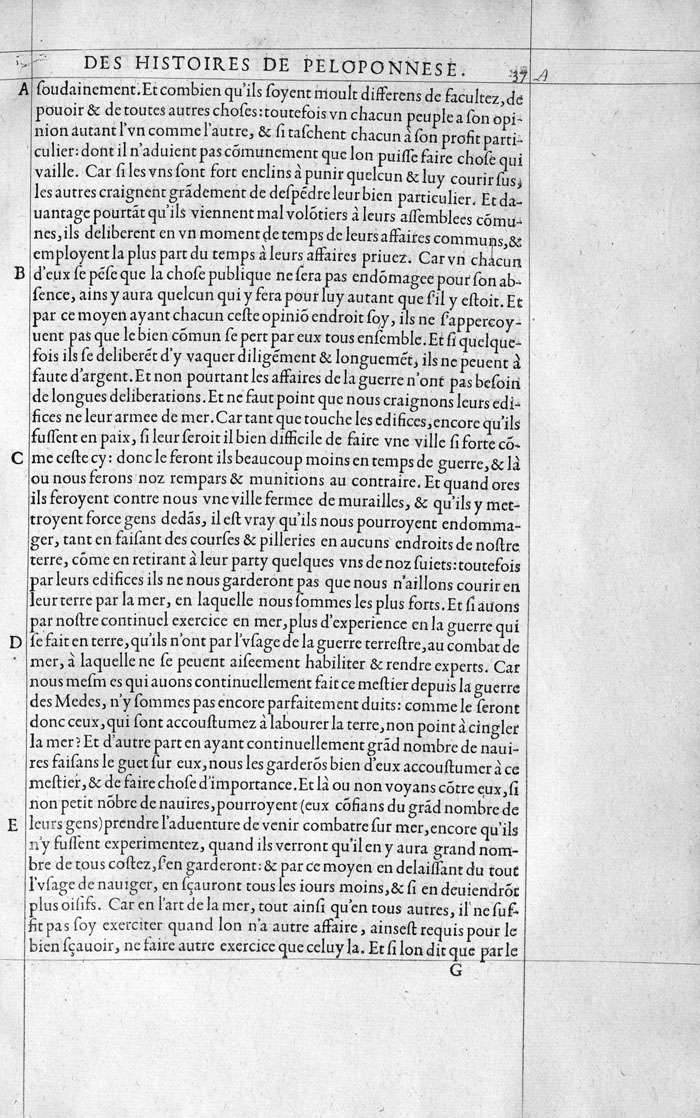 DES HISTOIRES DE PELOPONNESE. 37 A
A ſoudainement. Et combien qu'ils ſoyent moult differens de facultez, de
pouoir & de toutes autres choſes: toutefois vn chacun peuple a ſon opi-
nion autant l'vn comme l'autre, & ſi taſchent chacun à ſon profit parti-
culier: dont il n'aduient pas cõmunement que lon puiſſe faire choſe qui
vaille. Car ſi les vns ſont fort enclins à punir quelcun & luy courir ſus,
les autres craignent grãdement de deſpẽdre leur bien particulier. Et da-
uantage pourtãt qu'ils viennent mal volõtiers à leurs aſſemblees cõmu-
nes, ils deliberent en vn moment de temps de leurs affaires communs, &
employent la plus part du temps à leurs affaires priuez. Car vn chacun
B d'eux ſe pẽſe que la choſe publique ne ſera pas endõmagee pour ſon ab-
ſence, ains y aura quelcun qui y fera pour luy autant que ſ'il y eſtoit. Et
par ce moyen ayant chacun ceſte opiniõ endroit ſoy, ils ne ſ'appercoy-
uent pas que le bien cõmun ſe pert par eux tous enſemble. Et ſi quelque-
fois ils ſe deliberẽt d'y vaquer diligẽment & longuemẽt, ils ne peuent à
faute d'argent. Et non pourtant les affaires de la guerre n'ont pas beſoin
de longues deliberations. Et ne faut point que nous craignons leurs edi-
fices ne leur armee de mer. Car tant que touche les edifices, encore qu'ils
fuſſent en paix, ſi leur ſeroit il bien difficile de faire vne ville ſi forte cõ-
C me ceſte cy: donc le feront ils beaucoup moins en temps de guerre, & là
ou nous ferons noz rempars & munitions au contraire. Et quand ores
ils feroyent contre nous vne ville fermee de murailles, & qu'ils y met-
troyent force gens dedãs, il eſt vray qu'ils nous pourroyent endomma-
ger, tant en faiſant des courſes & pilleries en aucuns endroits de noſtre
terre, cõme en retirant à leur party quelques vns de noz ſuiets: toutefois
par leurs edifices ils ne nous garderont pas que nous n'aillons courir en
leur terre par la mer, en laquelle nous ſommes les plus forts. Et ſi auons
par noſtre continuel exercice en mer, plus d'experience en la guerre qui
D ſe fait en terre, qu'ils n'ont par l'vſage de la guerre terreſtre, au combat de
mer, à laquelle ne ſe peuent aiſeement habiliter & rendre experts. Car
nous meſm es qui auons continuellement fait ce meſtier depuis la guerre
des Medes, n'y ſommes pas encore parfaitement duits: comme le ſeront
donc ceux, qui ſont accouſtumez à labourer la terre, non point à cingler
la mer? Et d'autre part en ayant continuellement grãd nombre de naui-
res faiſans le guet ſur eux, nous les garderõs bien d'eux accouſtumer à ce
meſtier, & de faire choſe d'importance. Et là ou non voyans cõtre eux, ſi
non petit nõbre de nauires, pourroyent (eux cõfians du grãd nombre de
E leurs gens) prendre l'aduenture de venir combatre ſur mer, encore qu'ils
n'y fuſſent experimentez, quand ils verront qu'il en y aura grand nom-
bre de tous coſtez, ſ'en garderont: & par ce moyen en delaiſſant du tout
l'vſage de nauiger, en ſçauront tous les iours moins, & ſi en deuiendrõt
plus oiſifs. Car en l'art de la mer, tout ainſi qu'en tous autres, il ne ſuf-
fit pas ſoy exerciter quand lon n'a autre affaire, ainseſt requis pour le
bien ſçauoir, ne faire autre exercice que celuy la. Et ſi lon dit que par le
G